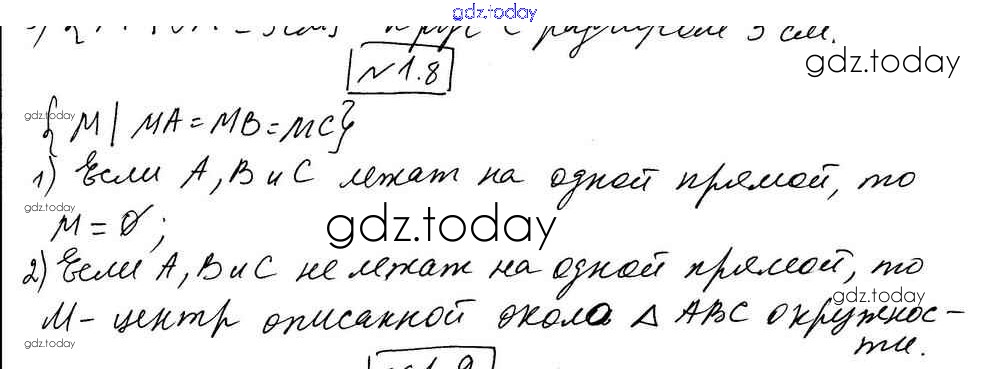 gdz.today
gdz.today
№1.8
gdz.today
{M | MA = MB = MC}
1) Если A, B и C лежат на одной прямой, то
gdz.today
M = ∅;
gdz.today
2) Если A, B и C не лежат на одной прямой, то
gdz.today
gdz.today
M - центр описанной около △ ABC окружнос-
ти.
gdz.today